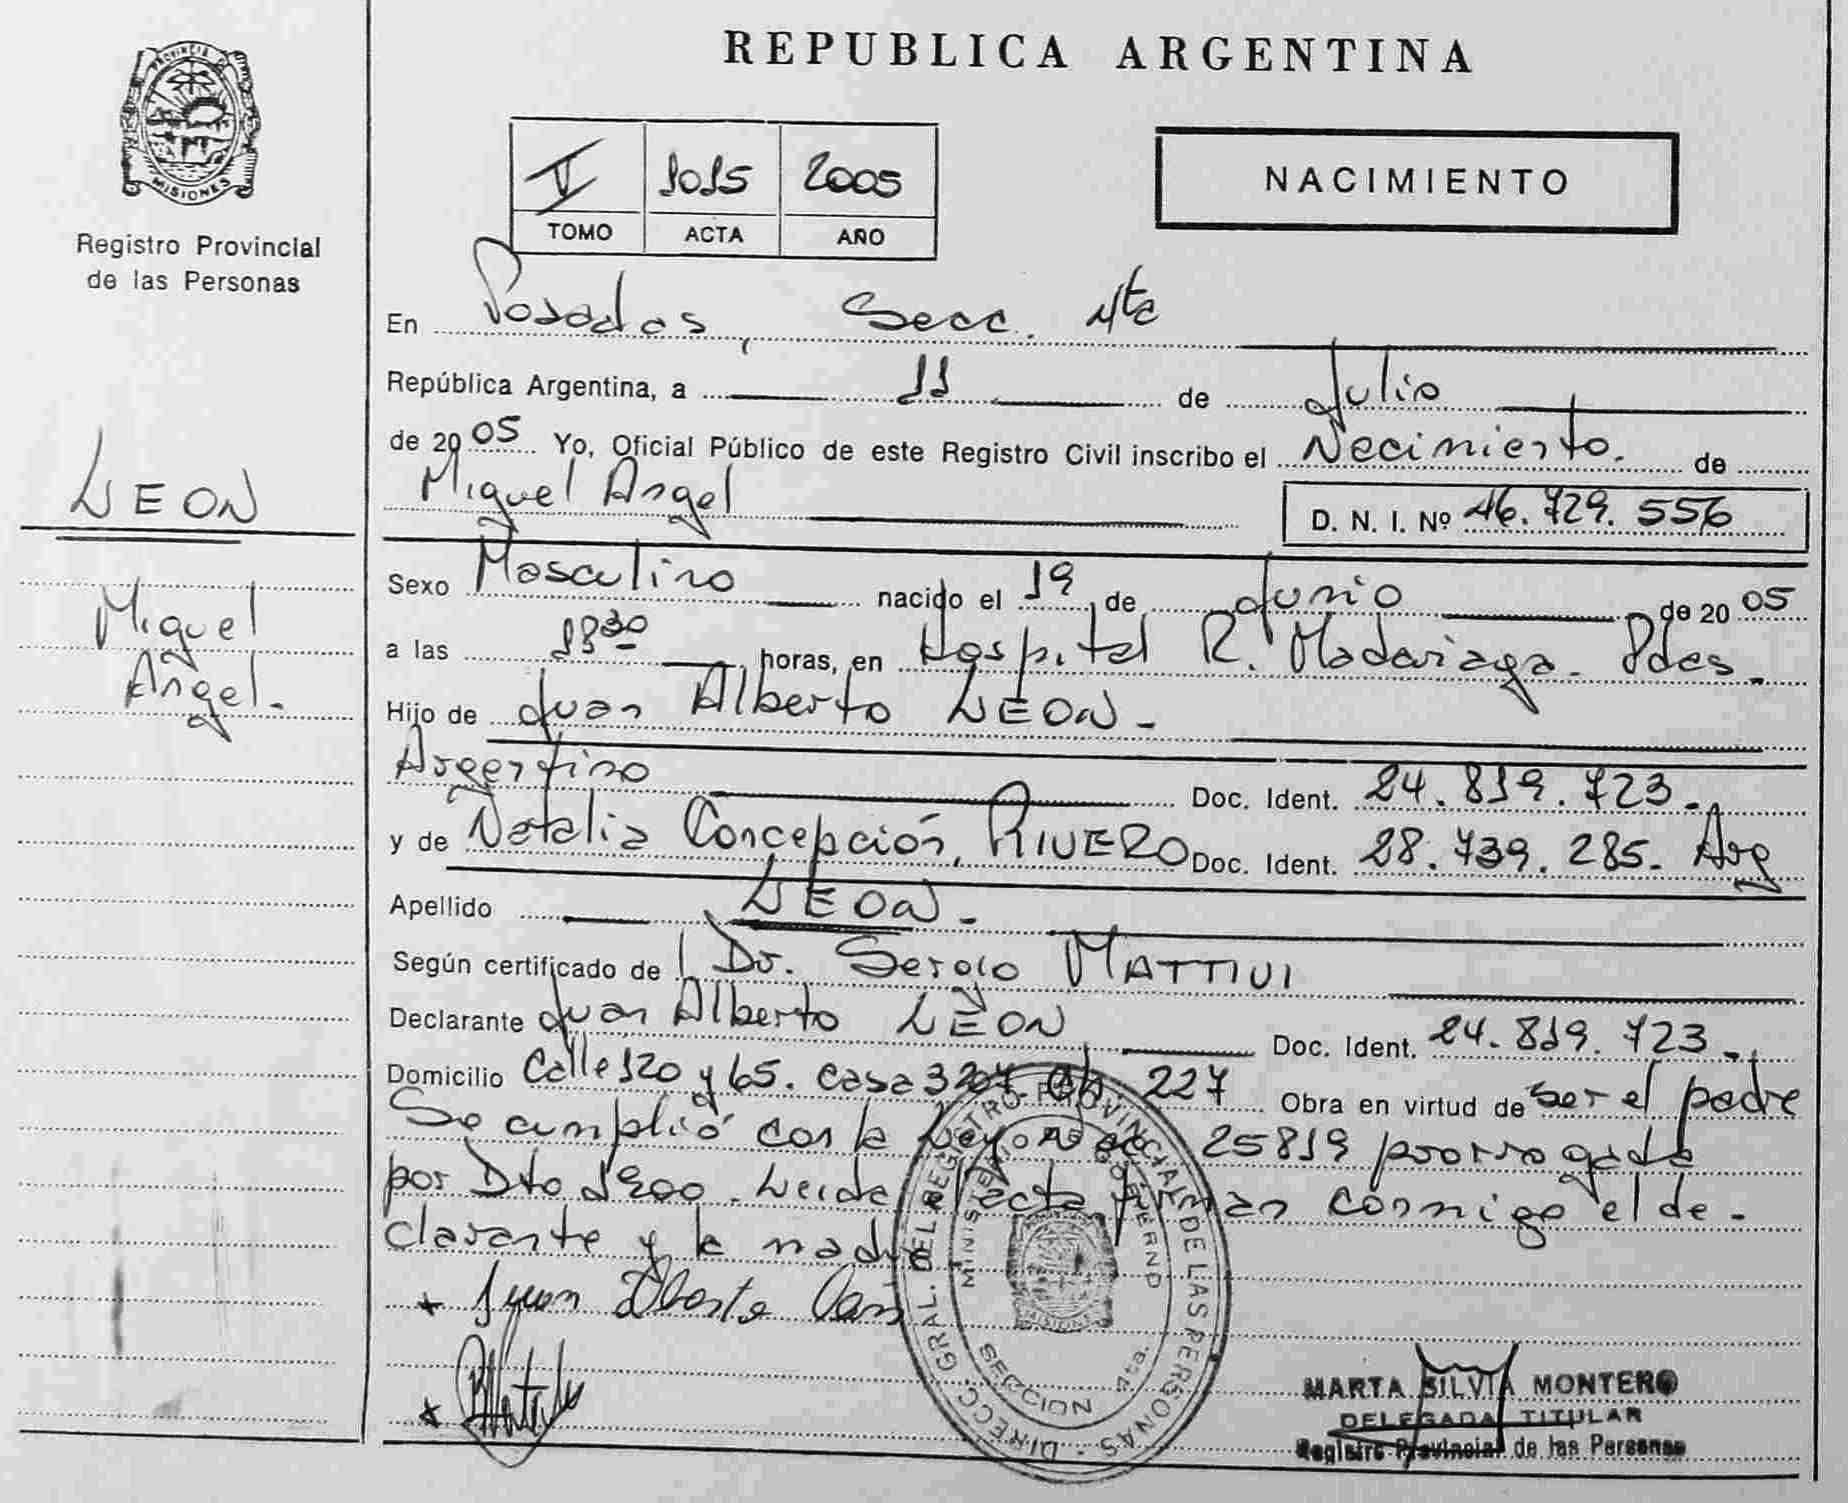 REPUBLICA ARGENTINA
PROVINCIA DE MISIONES
Registro Provincial
de las Personas
V 1015 2005
TOMO ACTA AÑO
NACIMIENTO
LEON
Miguel
Angel.
En Posadas, Secc. 4ta
República Argentina, a 11 de Julio
de 2005 Yo, Oficial Público de este Registro Civil inscribo el Nacimiento. de
Miguel Angel D. N. I. Nº 46.729.556
Sexo Masculino nacido el 19 de Junio de 2005
a las 1830 horas, en Hospital R. Madariaga. Pdas.
Hijo de Juan Alberto LEON.-
Argentino Doc. Ident. 24.819.723.-
y de Natalia Concepción, RIVERO Doc. Ident. 28.739.285. Arg
Apellido LEON.-
Según certificado de Dr. Sergio MATTIVI
Declarante Juan Alberto LEON Doc. Ident. 24.819.723.-
Domicilio Calle 120 y 65. casa 327 Ch 227 Obra en virtud de ser el padre
Se cumplió con la Ley 25819 prorrogada
por Dto 1900. Leida el acta firman conmigo el de-
clarante y la madre
DIRECC. GRAL. DEL REGISTRO PROVINCIAL DE LAS PERSONAS
MINISTERIO DE GOBIERNO
MISIONES
SECCION 4ta.
MARTA SILVIA MONTERO
DELEGADA TITULAR
Registro Provincial de las Personas